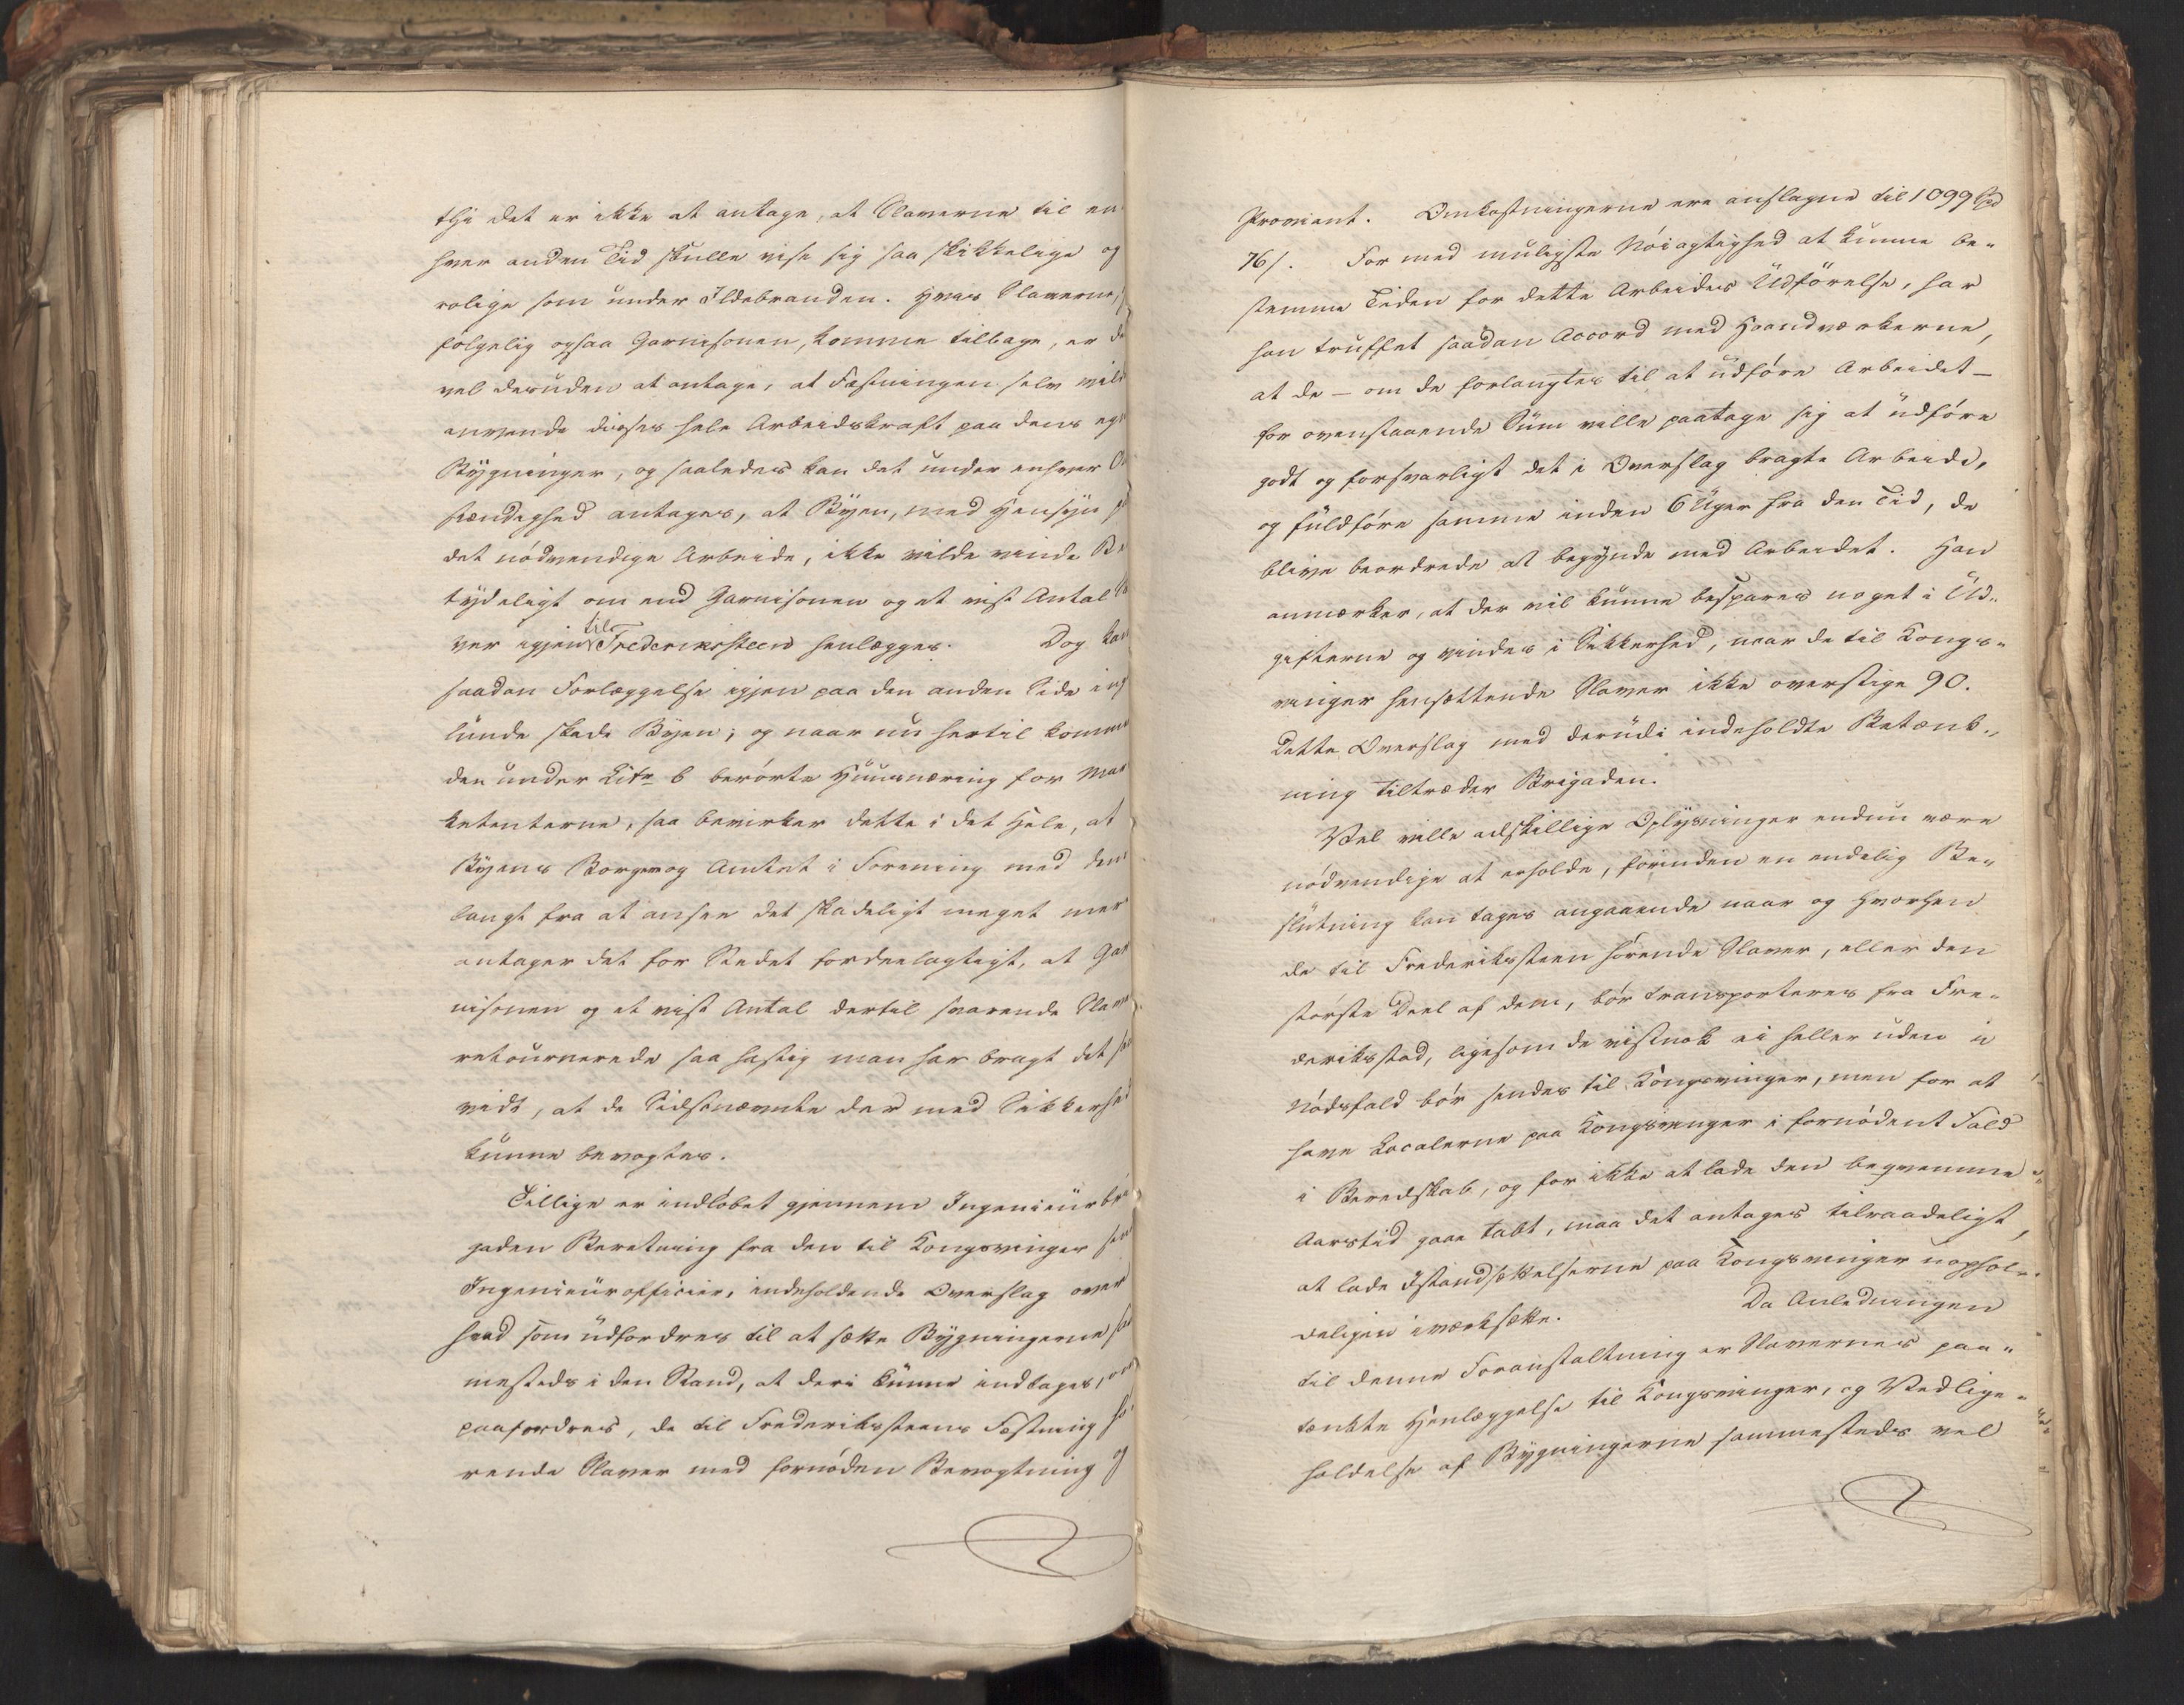 thi det er ikke at antage, at Slaverne til en
hver anden Tid skulle vise sig saa skikkelige og
rolige som under Ildebranden. Hvis Slaverne,
følgelig ogsaa Garnisonen, komme tilbage, er de
vel desuden at antage, at Fæstningen selv vil
anvende disses hele Arbeidskraft paa dens eg
Bygninger, og saaledes kan det under enhver O
stændighed antages, at Byen, med Hensyn p
det nødvendige Arbeide, ikke vilde vinde Be
tydeligt om end Garnisonen og et vist Antal
ver igjen til Frederiksteen henlægges. Dog kan
saadan Forlæggelse igjen paa den anden Side ing
lunde skade Byen; og naar nu hertil komme
den under Litr b berørte Huusnæring for Mar
ketenterne, saa bevirker dette i det Hele, at
Byens Borger og Amtet i Forening med den
langt fra at ansee det skadeligt meget mer
antager det for Stedet fordeelagtigt, at Gar
nisonen og et vist Antal dertil svarende Slave
retournerede saa hastig man har bragt det saa
vidt, at de Sidstnævnte der med Sikkerhed
kunne bevogtes.
Tillige er indløbet gjennem Ingenieurbri
gaden Beretning fra den til Kongsvinger sen
Ingenieurofficier, indeholdende Overslag over
hvad som udfordres til at sætte Bygningerne sam
mesteds i den Stand, at deri kunne indtages, om
paafordres, de til Frederikssteens Fæstning hø
rende Slaver med fornøden Bevogtning og
Proviant. Omkostningerne ere anslagne til 1099 Spd
76 /. For med muligste Nøiagtighed at kunne be-
stemme Tiden for dette Arbeides Udførelse, har
han truffet saadan Accord med Haandværkerne,
at de – om de forlangtes til at udføre Arbeidet –
for ovenstaaende Sum ville paatage sig at udføre
godt og forsvarligt det i Overslag bragte Arbeide,
og fuldføre samme inden 6 Uger fra den Tid, de
blive beordrede at begynde med Arbeidet. Han
anmærker, at der vil kunne bespares noget i Ud-
gifterne og vindes i Sikkerhed, naar de til Kongs-
vinger hensættende Slaver ikke overstige 90.
Dette Overslag med derudi indeholdte Betænk-
ning tiltræder Brigaden.
Vel ville adskillige Oplysninger endnu være
nødvendige at erholde, førinden en endelig Be-
slutning kan tages angaaende naar og hvorhen
de til Frederikssteen hørende Slaver, eller den
største Deel af dem, bør transporteres fra Fre-
deriksstad, ligesom de vistnok ei heller uden i
Nødsfald bør sendes til Kongsvinger, men for at
have Localerne paa Kongsvinger i fornødent Fald
i Beredskab, og for ikke at lade den beqvemme
Aarstid gaae tabt, maa det antages tilraadeligt,
at lade Istandsættelserne paa Kongsvinger uophol-
deligen iværksætte. Da Anledningen
til denne Foranstaltning er Slavernes paa-
tænkte Henlæggelse til Kongsvinger, og Vedlige-
holdelse af Bygningerne sammesteds vel